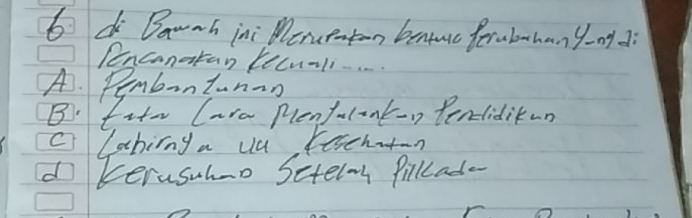 6. di Bawah ini Merupakan bentuk Perubahan Yang di
Rencanakan Kecuali.....
A. Pembangunan
B. tata Cara Menjalankan Pendidikan
C Lahirnya UU Kesehatan
d Kerusuhan Setelah Pilkada